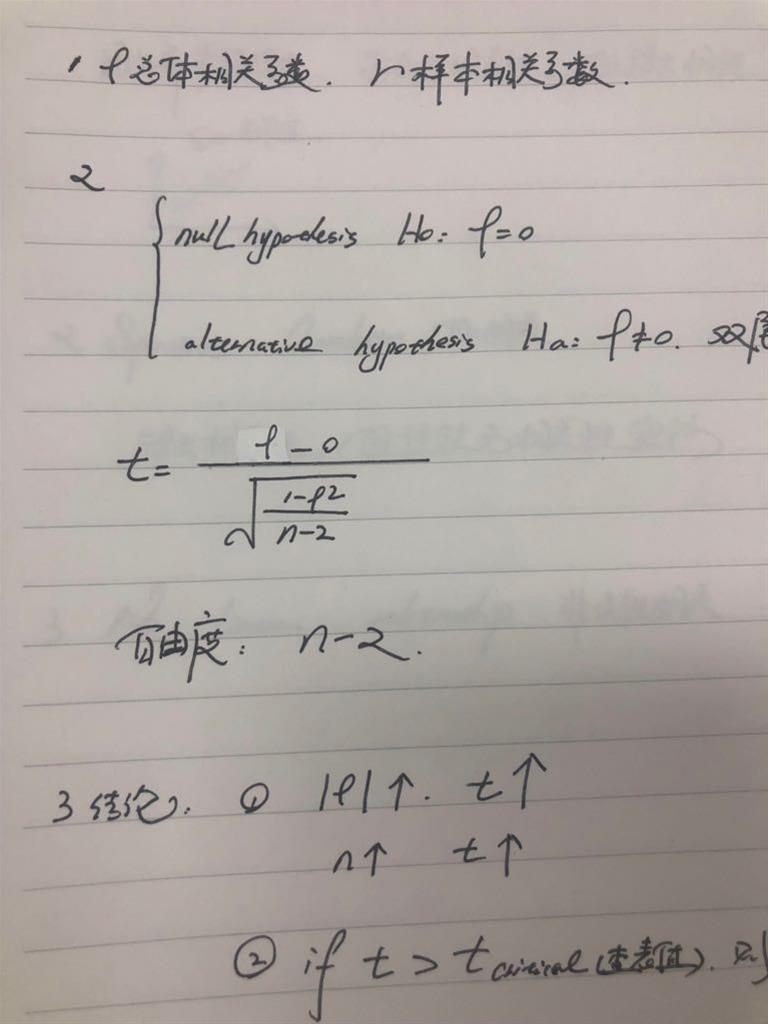 1 ρ总体相关子数. r样本相关子数.
2
null hypothesis H0: ρ=0
alternative hypothesis Ha: ρ≠0.
t= ρ-0
√ 1-ρ2
n-2
自由度: n-2.
3 结论: ① |ρ|↑. t↑
n↑ t↑
② if t > t critical (查表值). 则